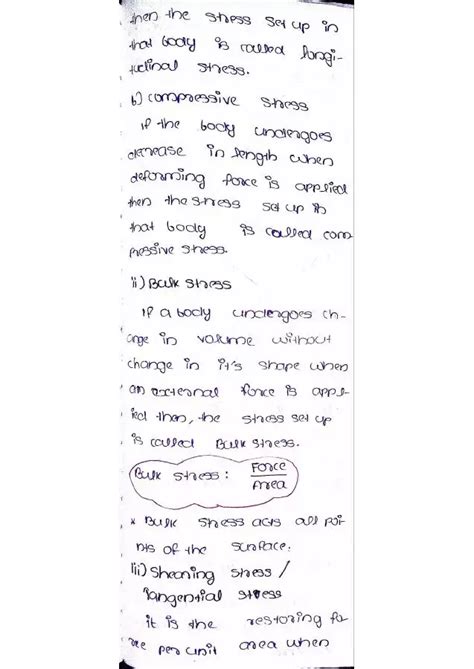 then the stress set up in
that body is called longi-
tudinal stress.
b) compressive stress
if the body undergoes
decrease in length when
deforming force is applied
then the stress set up in
that body is called com
pressive stress.
ii) Bulk stress
If a body undergoes ch-
ange in volume without
change in it's shape when
an external force is appl-
ied then, the stress set up
is called Bulk stress.
Bulk stress : Force
Area
* Bulk stress acts all poi-
nts of the surface.
iii) Shearing stress /
Tangential stress
it is the restoring fo
rce per unit area when